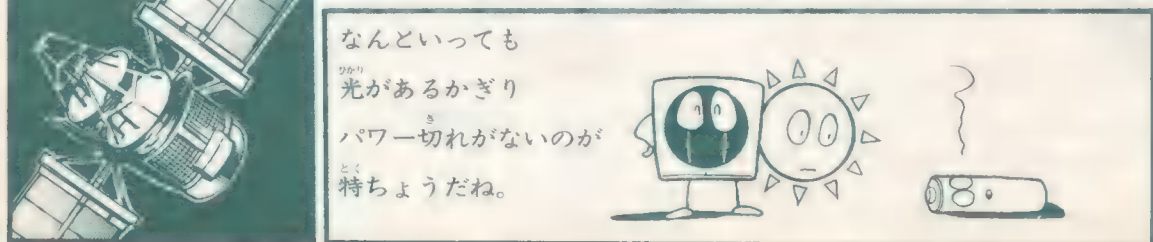 なんといっても
光があるかぎり
パワー切れがないのが
特ちょうだね。